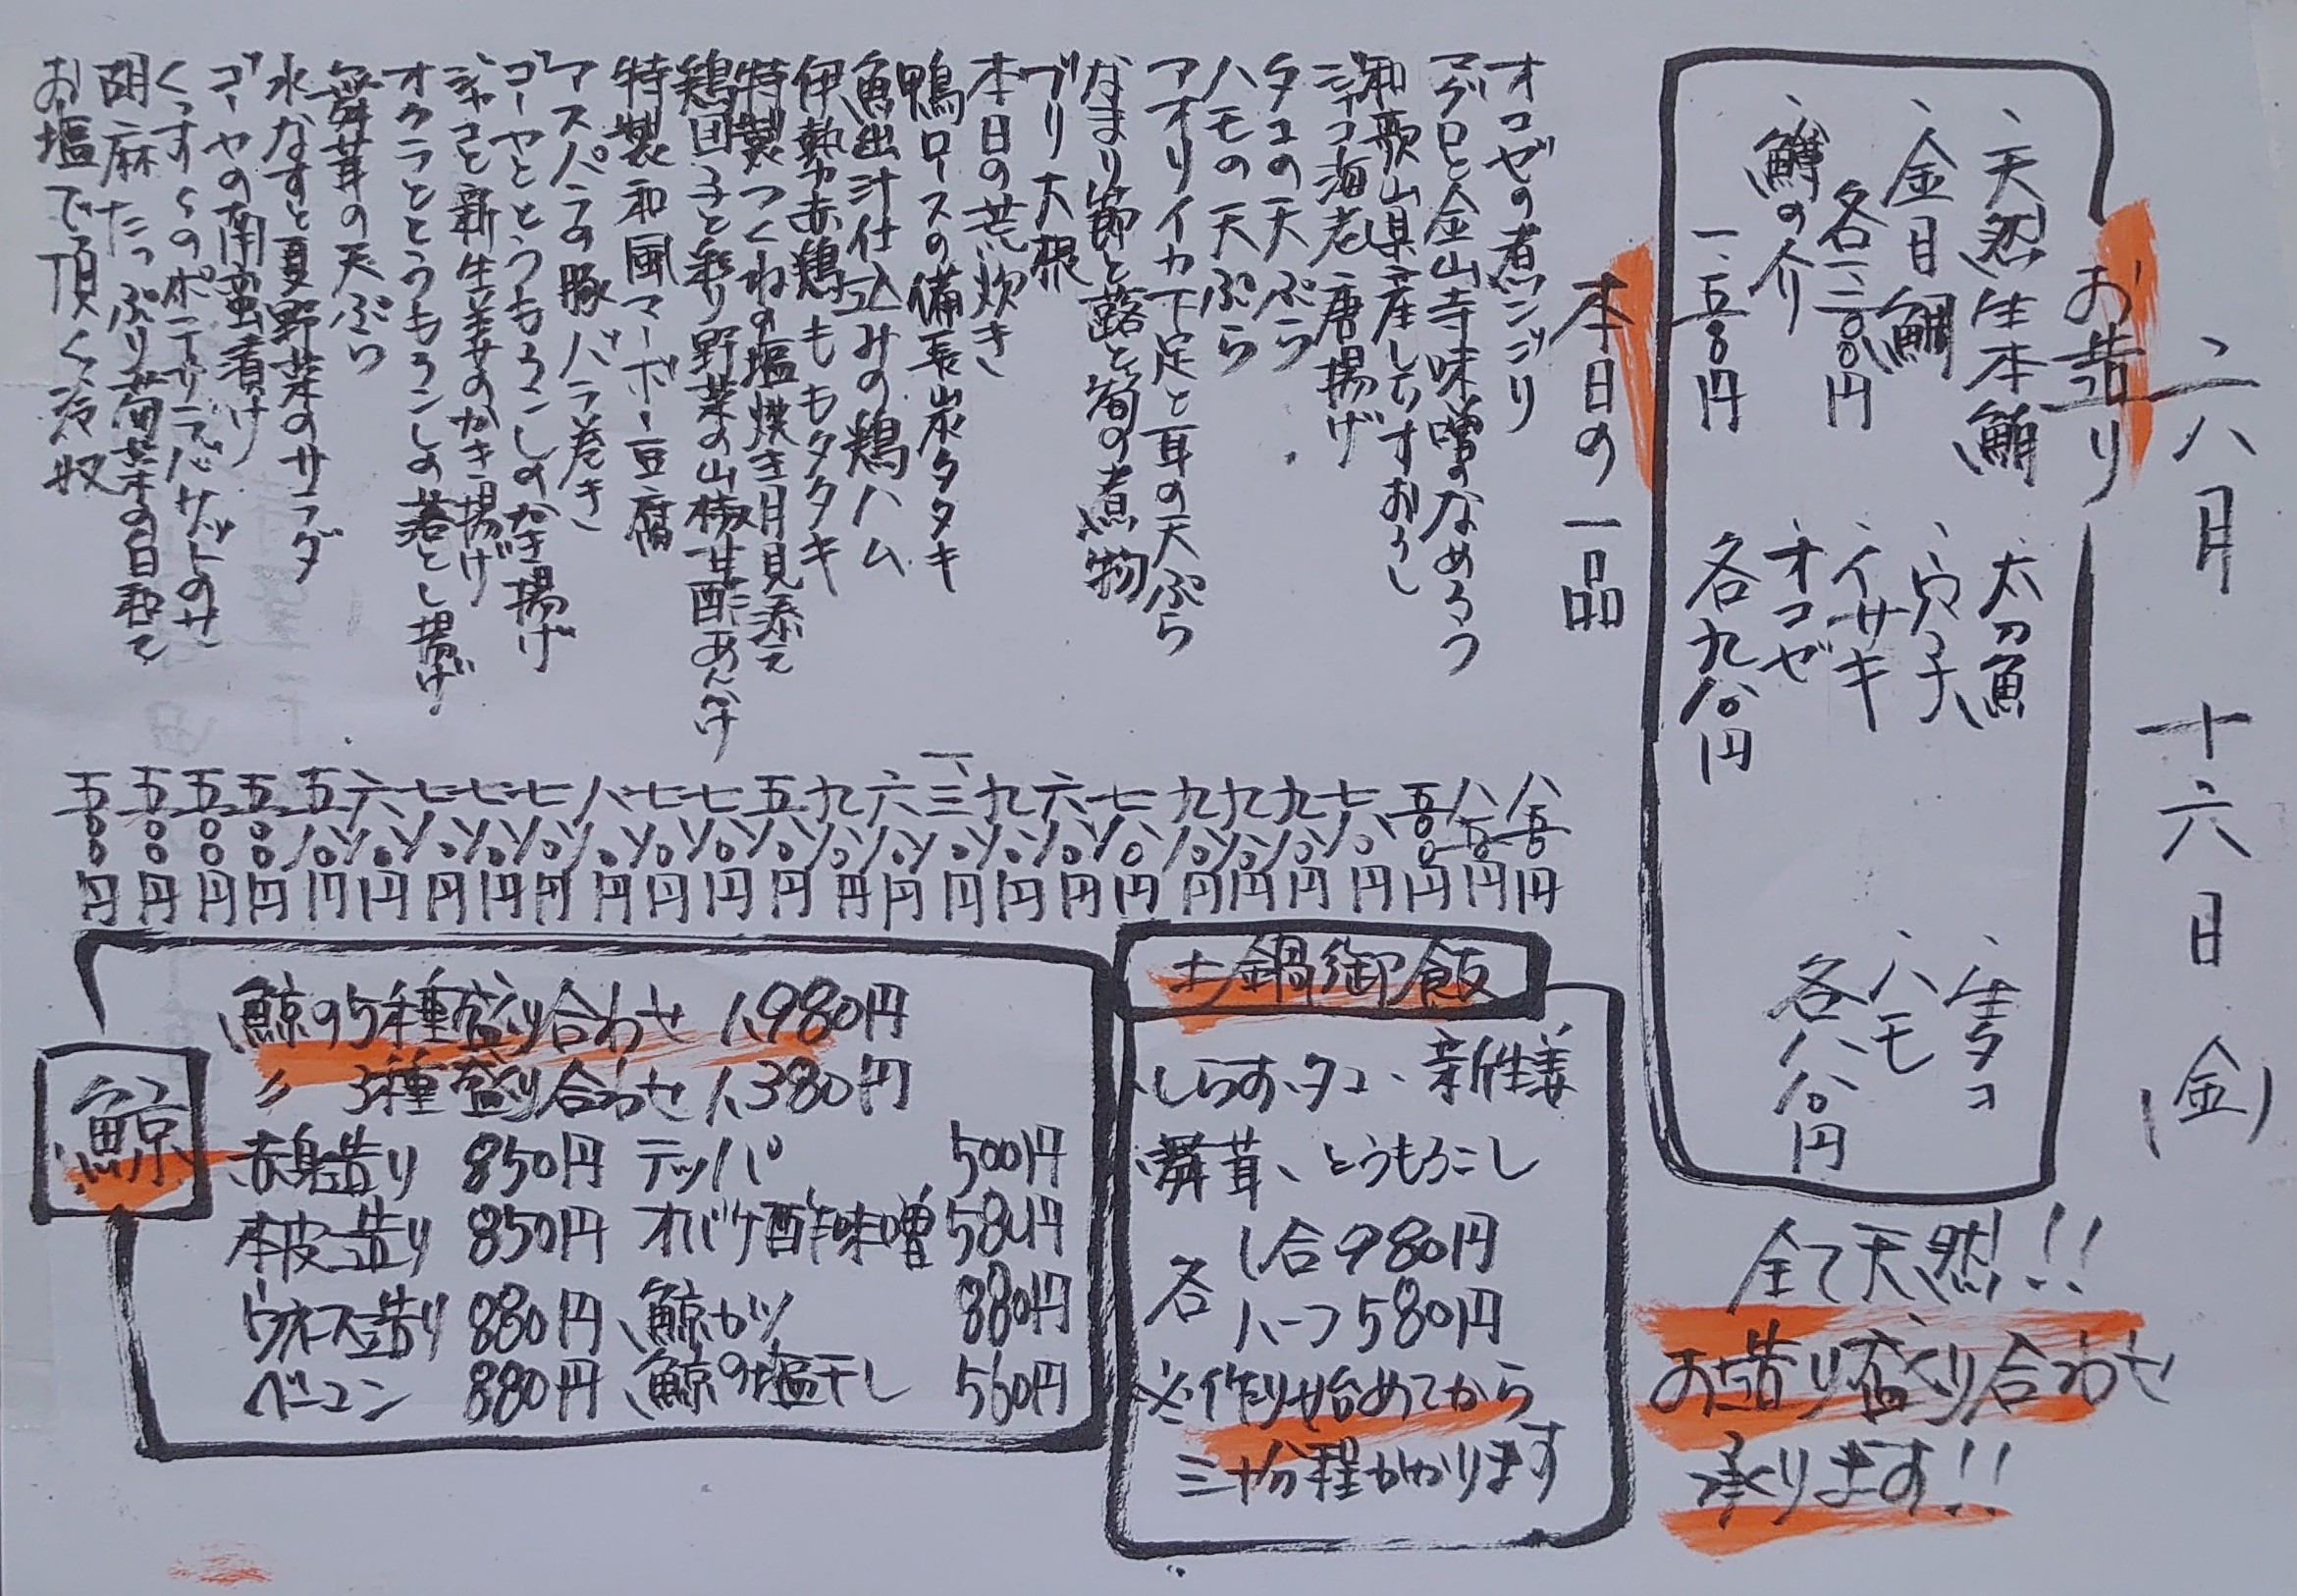 六月 十六日(金)
お造り
、天然生本鮪
、金目鯛
各一、二〇〇円
、鱒の介
一、五〇〇円
、太刀魚
、穴子
、イサキ
、オコゼ
各九八〇円
、生タコ
、ハモ
各八八〇円
全て天然!!
お造り盛り合わせ
承ります!!
本日の一品
オコゼの煮こごり 八五〇円
マグロと金山寺味噌のなめろう 八五〇円
和歌山県産しらすおろし 五五〇円
シャコ海老唐揚げ 七八〇円
タコの天ぷら 九八〇円
ハモの天ぷら 九八〇円
アオリイカ下足と耳の天ぷら 九八〇円
なまり節と蕗と筍の煮物 七八〇円
ブリ大根 六八〇円
本日の荒炊き 九八〇円
鴨ロースの備長炭タタキ 一、三八〇円
魚出汁仕込みの鶏ハム 六八〇円
伊勢赤鶏もものタタキ 九八〇円
特製つくねの塩焼き月見添え 五八〇円
鶏団子と彩り野菜の山椒甘酢あんかけ 七八〇円
特製和風マーボー豆腐 七八〇円
アスパラの豚バラ巻き 八八〇円
ゴーヤととうもろこしのかき揚げ 七八〇円
ジャコと新生姜のかき揚げ 七八〇円
オクラととうもろこしの落とし揚げ 七八〇円
舞茸の天ぷら 六八〇円
水なすと夏野菜のサラダ 五八〇円
ゴーヤの南蛮漬け 五〇〇円
くつすくのポテサラバサットのせ 五〇〇円
胡麻たっぷり菊菜の白和え 五〇〇円
お塩で頂く冷奴 五〇〇円
土鍋御飯
、しらす、タコ、新生姜
、舞茸、とうもろこし
各 1合980円
ハーフ580円
※作り始めてから
三十分程かかります
鯨
鯨の5種盛り合わせ 1,980円
〃 3種盛り合わせ 1,380円
赤身造り 850円 テッパ 500円
本皮造り 850円 オバケ酢味噌 580円
ウネス造り 880円 鯨カツ 880円
ベーコン 880円 鯨の塩干し 560円